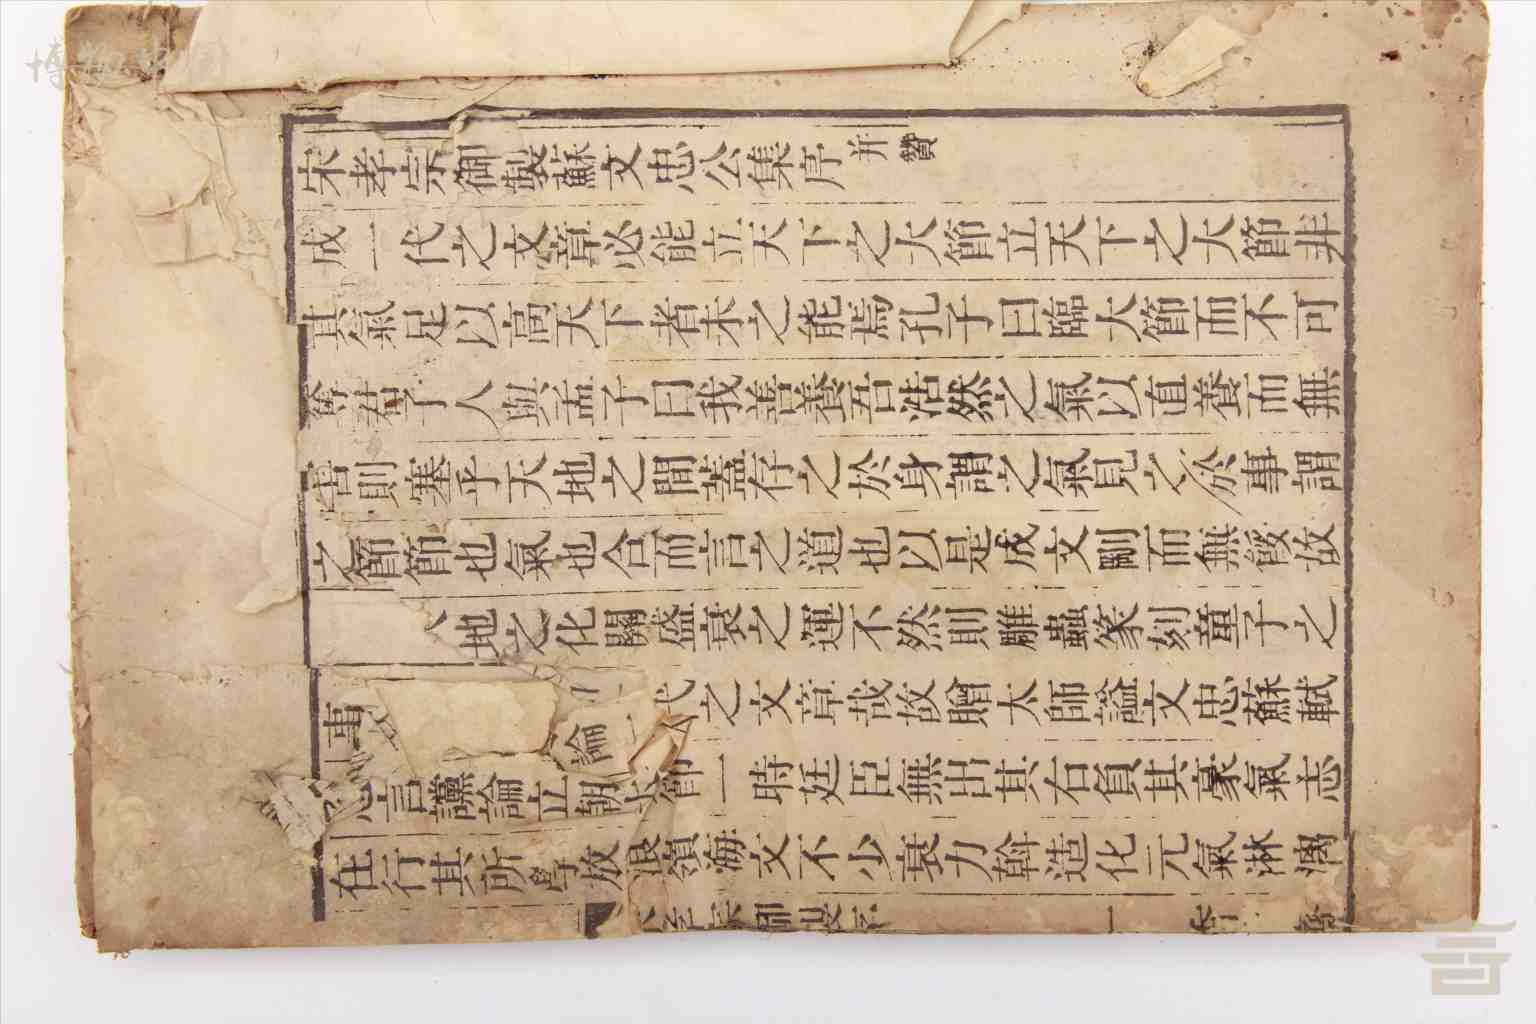 宋孝宗御製蘇文忠公集序 并贊
成一代之文章必能立天下之大節立天下之大節非
其氣足以高天下者未之能焉孔子曰臨大節而不可
奪君子人與孟子曰我善養吾浩然之氣以直養而無
害則塞乎天地之間蓋存之於身謂之氣見之於事謂
之節節也氣也合而言之道也以是成文剛而無餒故
地之化關盛衰之運不然則雕蟲篆刻童子之
事論一代之文章哉故贈太師諡文忠蘇軾
忠言讜論立朝大節一時廷臣無出其右負其豪氣志
在行其所學放浪嶺海文不少衰力斡造化元氣淋漓